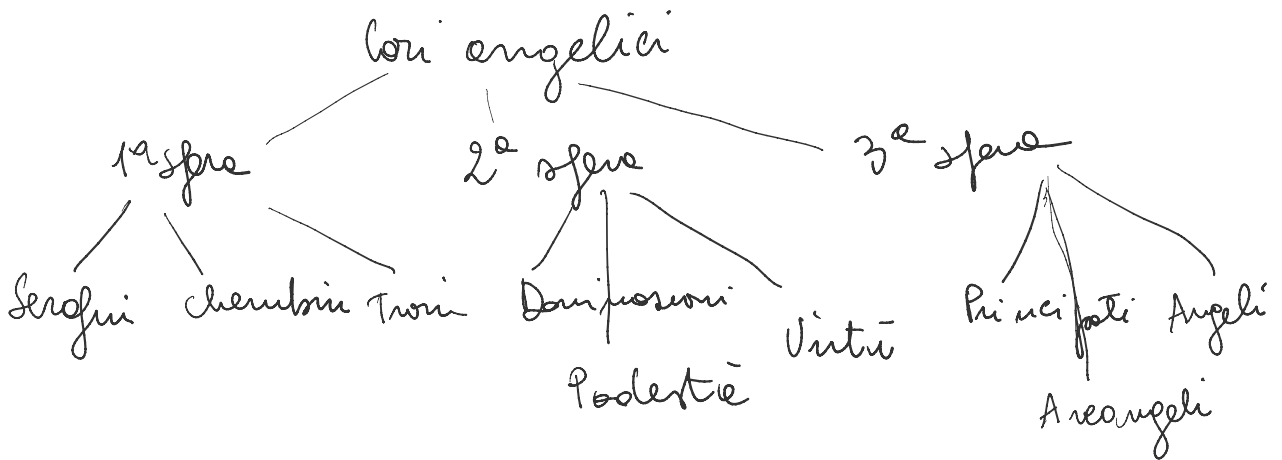 Cori angelici
1ª sfera 2ª sfera 3ª sfera
Serafini Cherubini Troni Dominazioni Virtù Principati Angeli
Podestà Arcangeli